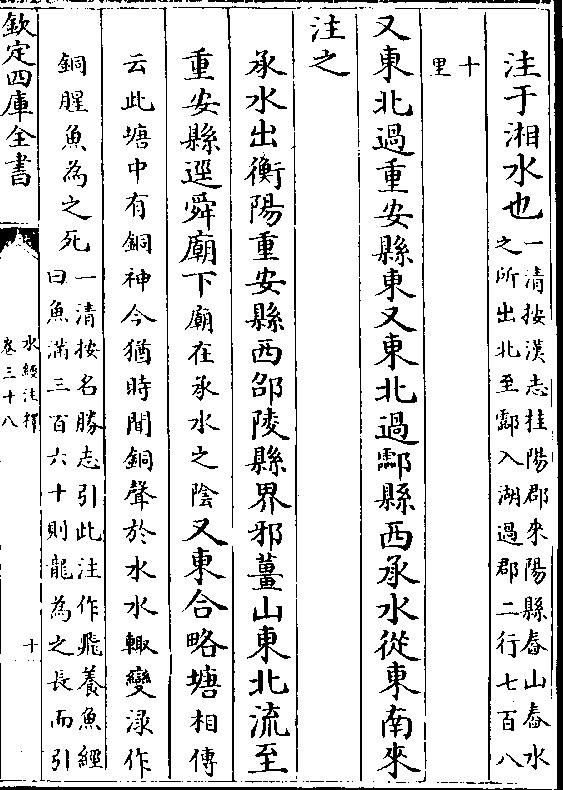 注于湘水也一清按漢志桂陽郡耒陽縣舂山舂水
之所出北至酃入湖過郡二行七百八
十
里
又東北過重安縣東又東北過酃縣西承水從東南來
注之
承水出衡陽重安縣西邵陵縣界邪薑山東北流至
重安縣逕舜廟下廟在承水之陰又東合略塘相傳
云此塘中有銅神今猶時聞銅聲於水水輙變渌作
銅腥魚為之死一清按名勝志引此注作飛養魚經
曰魚滿三百六十則龍為之長而引
欽定四庫全書
水經注釋
卷三十八
十